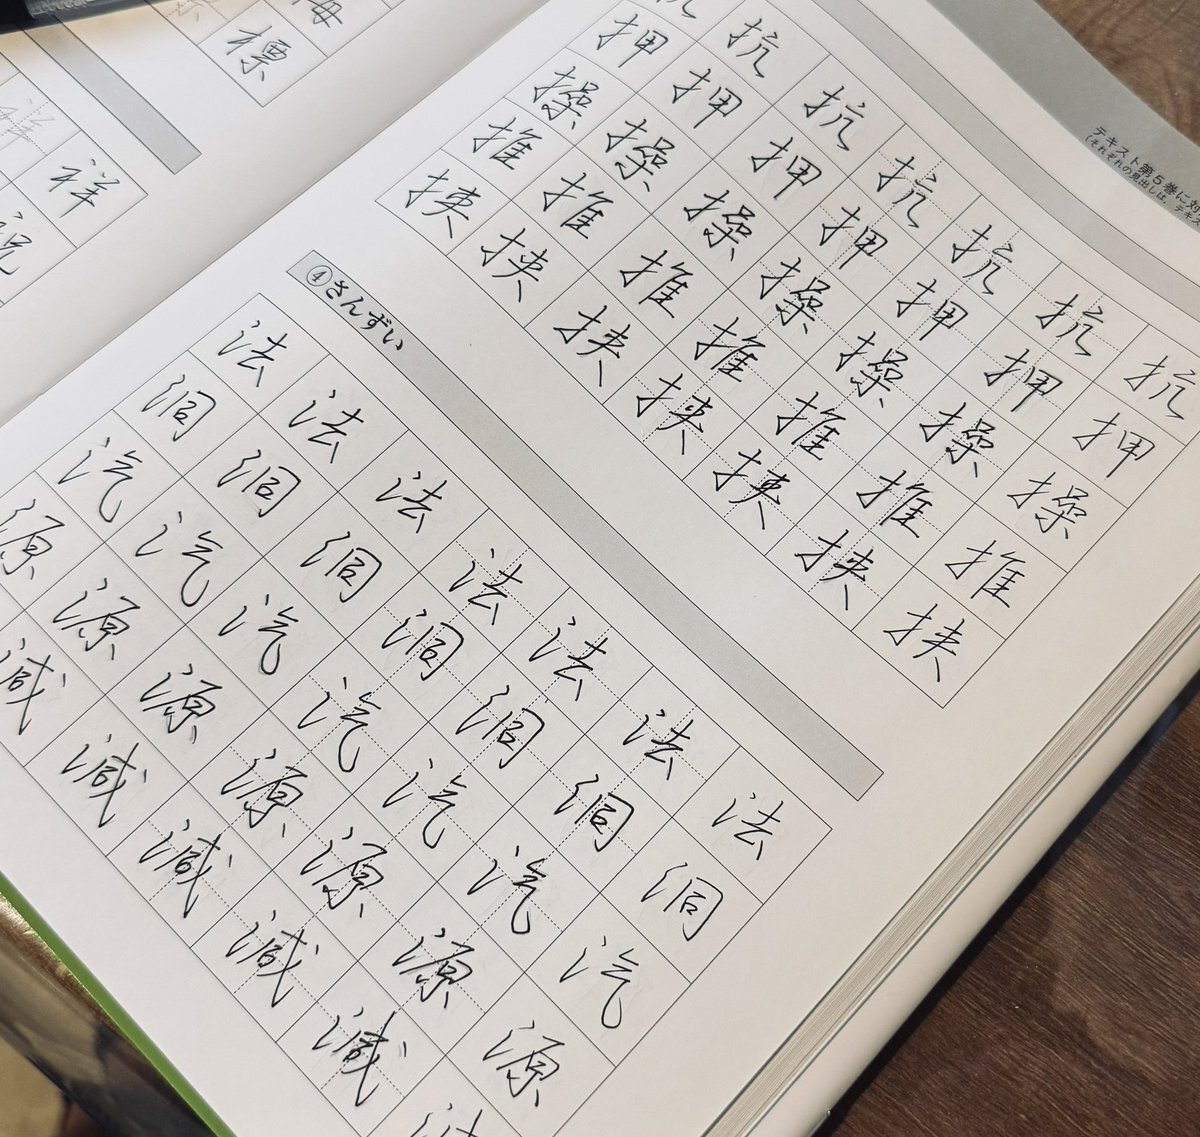 標
祥
テキスト第5巻に対
(それぞれの見出しは、テキス
抗抗抗抗抗抗抗
押押押押押押押
操操操操操操操
推推推推推推推
挟挟挟挟挟挟挟
④さんずい
法法法法法法法
洞洞洞洞洞洞洞
汽汽汽汽汽汽汽
源源源源源源源
減減減減減